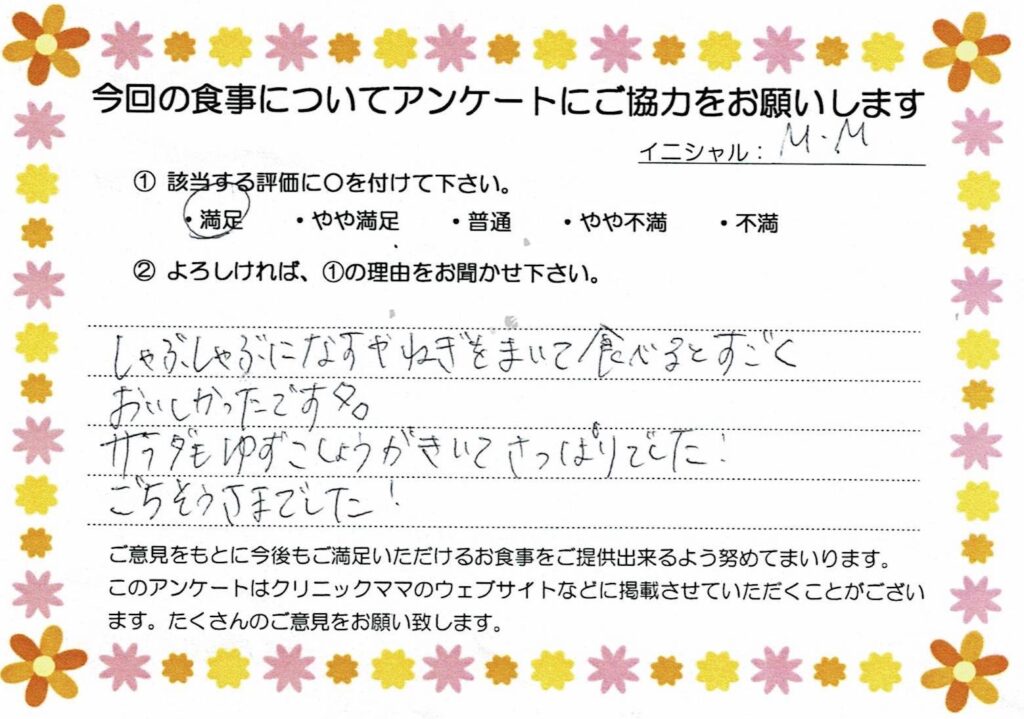 今回の食事についてアンケートにご協力をお願いします
イニシャル： M.M
① 該当する評価に〇を付けて下さい。
・満足 ・やや満足 ・普通 ・やや不満 ・不満
② よろしければ、①の理由をお聞かせ下さい。
しゃぶしゃぶになすやねぎをまいて食べるとすごく
おいしかったです。
サラダもゆずこしょうがきいてさっぱりでした！
ごちそうさまでした！
ご意見をもとに今後もご満足いただけるお食事をご提供出来るよう努めてまいります。
このアンケートはクリニックママのウェブサイトなどに掲載させていただくことがござい
ます。たくさんのご意見をお願い致します。